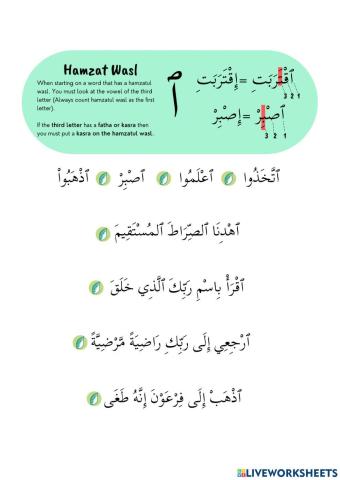 Hamzat Wasl
When starting on a word that has a hamzatul
wasl. You must look at the vowel of the third
letter (Always count hamzatul wasl as the first
letter).
If the third letter has a fatha or kasra then
you must put a kasra on the hamzatul wasl.
ٱ
ٱقْتَرَبَتِ =إِقْتَرَبَتِ
3 2 1
ٱصْبِرْ =إِصْبِرْ
3 2 1
ٱتَّخَذُوا ٱعْلَمُوا ٱصْبِرْ ٱذْهَبُواْ
ٱهْدِنَا ٱلصِّرَاطَ ٱلمُسْتَقِيمَ
ٱقْرَأْ بِاسْمِ رَبِّكَ ٱلَّذِي خَلَقَ
ٱرْجِعِي إِلَى رَبِّكِ رَاضِيَةً مَّرْضِيَّةً
ٱذْهَبْ إِلَى فِرْعَوْنَ إِنَّهُ طَغَى
LIVEWORKSHEETS